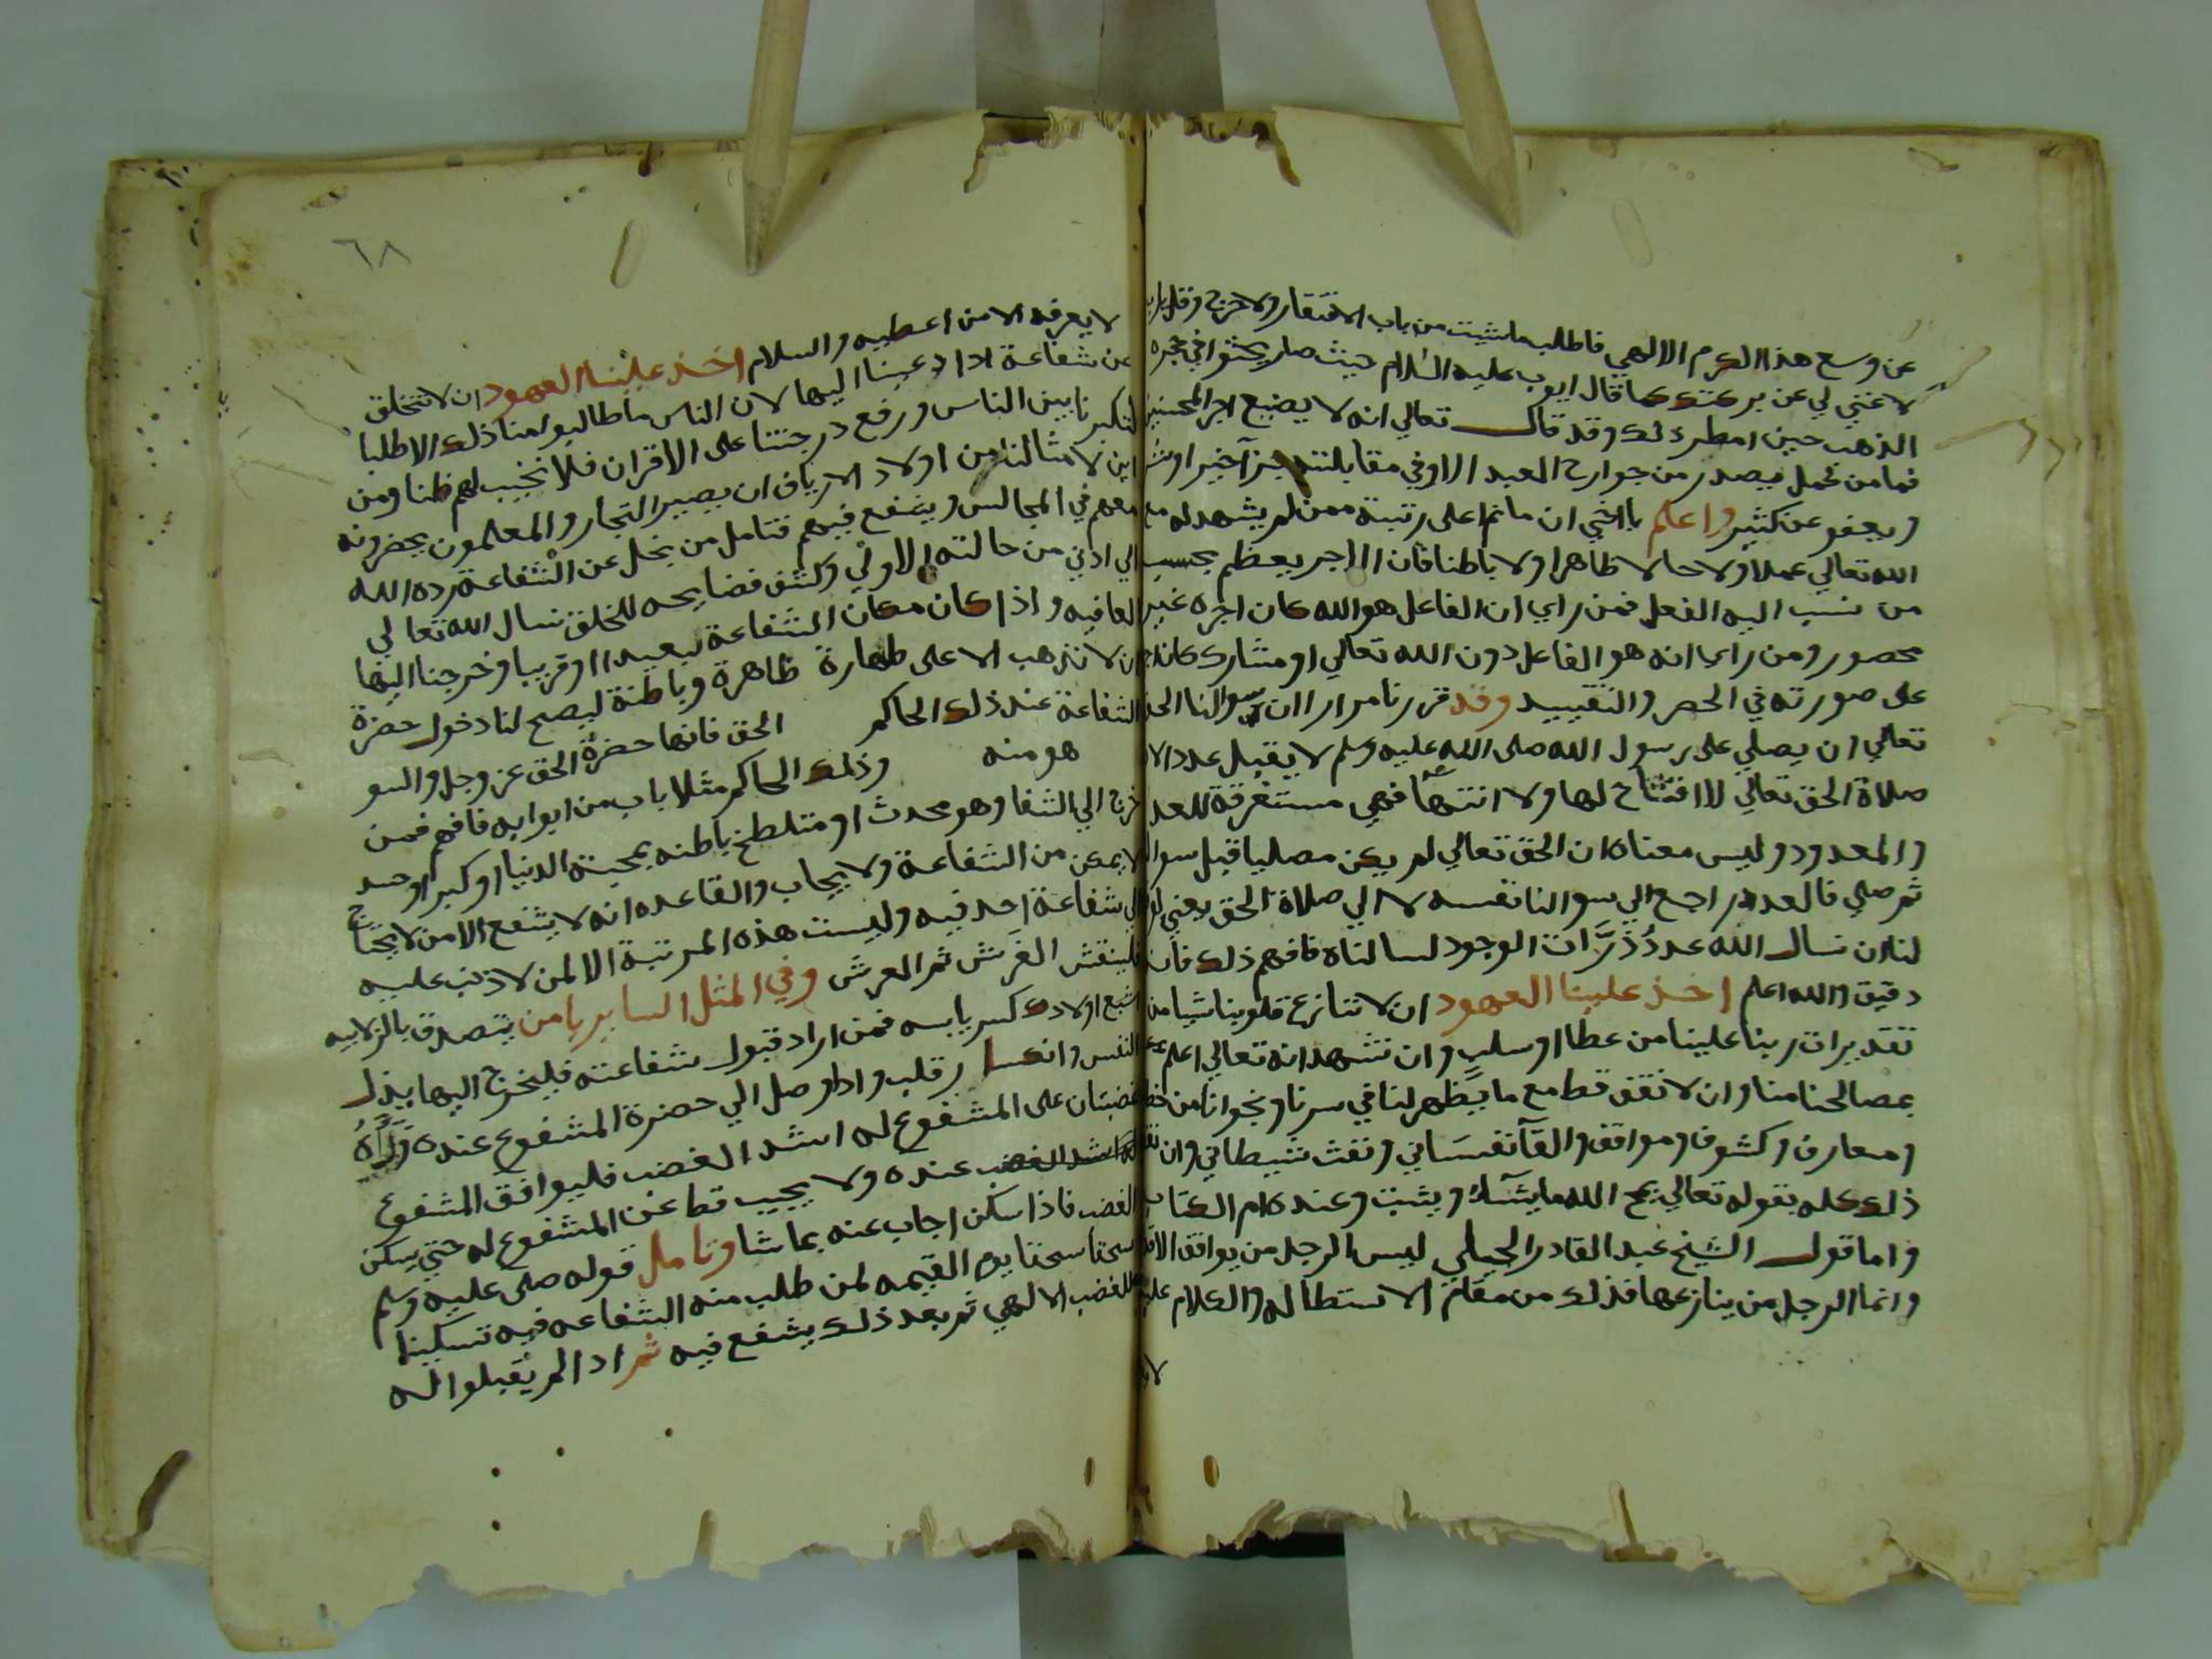 عن وسع هذا الكرم الالهي فاطلب ما شيت من باب الافتقار ولا حرج وقل يارب
لا غني لي عن بركتك كما قال ايوب عليه السلام حيث صار يحثوا في حجره
الذهب حين امطر ذلك وقد قال تعالي انه لا يضيع اجر المحسنين
فما من عمل يصدر من جوارح العبد الا وفي مقابلته جزآ خير او شر
ويعفو عن كثير واعلم يا اخي ان ما ثم اعلى رتبة ممن لم يشهد له مع
الله تعالي عملا ولا حالا ظاهرا ولا باطنا فان الاجر يعظم بحسب
من نسب اليه الفعل فمن راي ان الفاعل هو الله كان اجره غير
محصور ومن راي انه هو الفاعل دون الله تعالي او مشارك كان اجره
على صورته في الحصر والتقييد وقد قررنا مرارا ان سوالنا الحق
تعالي ان يصلي على رسول الله صلى الله عليه وسلم لا يقبل عدد الان
صلاة الحق تعالي لا افتتاح لها ولا انتها فهي مستغرقة للعدد
والمعدود وليس معناه ان الحق تعالي لم يكن مصليا قبل سوالنا
ثم صلي فالعدد راجع الي سوالنا نفسه لا الي صلاة الحق يعني لو
لنا ان نسال الله عدد ذرات الوجود لسالناه فافهم ذلك فانه
دقيق والله اعلم اخذ علينا العهود ان لا تنازع قلوبنا شيا من
تقديرات ربنا علينا من عطا او سلب وان نشهد انه تعالي اعلم
بمصالحنا منا وان لا نقف قط مع ما يظهر لنا في سرنا ونجوانا من
ومعارف وكشوف ومواقف والقآ نفساني ونفث شيطاني وان
ذلك كله بقوله تعالي يمح الله ما يشآء ويثبت وعنده ام الكتاب
واما قول الشيخ عبد القادر الجيلي ليس الرجل من يوافق الاقد
وانما الرجل من ينازعها فذلك من مقام الاستطاله والكلام عليه
لا
٦٨
لا يعرفه الا من اعطيه والسلام اخذ علينا العهود ان لا نتخلق
عن شفاعة اذا دعينا اليها لان الناس ما طالبوا منا ذلك الا طلبا
لتكبرنا بين الناس ورفع درجتنا على الاقران فلا نخيب لهم ظنا ومن
اين لامثالنا من اولاد الارياف ان يصير التجار والمعلمون يحضرونه
معهم في المجالس ويشفع فيهم فتامل من بخل عن الشفاعة رده الله
الي ادني من حالته الاولي وكشف فضايحه للخلق نسال الله تعالي
العافيه واذا كان مكان الشفاعة بعيدا او قريبا وخرجنا اليها
ان لا نذهب الا على طهارة ظاهرة وباطنة ليصح لنا دخول حضرة
الشفاعة عند ذلك الحاكم الحق فانها حضرة الحق عز وجل والسو
هو منه وذلك الحاكم مثلا باب من ابوابه فافهم فمن
خرج الي الشفا وهو محدث او متلطخ باطنه بمحبة الدنيا او كبر او حسد
لا يمكن من الشفاعة ولا يجاب والقاعده انه لا يشفع الا من لا يحتاج
الي شفاعة احد فيه وليست هذه المرتبة الا لمن لا ذنب عليه
فلينقش الفرش ثم العرش وفي المثل الساير يا من يتصدق بالزلابيه
اشبع اولادك كسر يابسه فمن اراد قبول شفاعته فليخرج اليها بذل
النفس وانكسار قلب واذا وصل الي حضرة المشفوع عنده ورآه
غضبان على المشفوع له اشد الغضب فليوافق المشفوع
عنده ولا يجيب قط عن المشفوع له حتي يسكن
الغضب فاذا سكن اجاب عنه بما شا وتامل قوله صلى عليه وسلم
سحقا سحقا يوم القيمه لمن طلب منه الشفاعه فيه تسكينا
للغضب الالهي ثم بعد ذلك يشفع فيه ثم اذا لم يقبلوا له